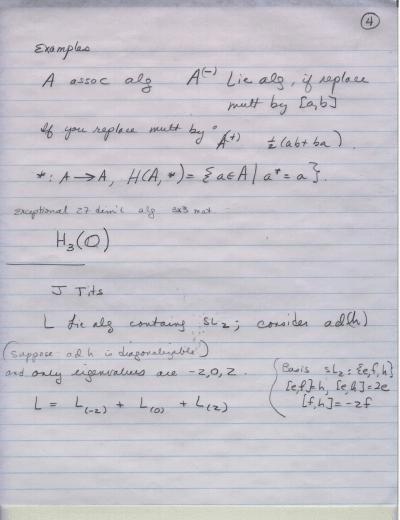 4
Examples
A assoc alg A^(-) Lie alg, if replace
mult by [a,b]
If you replace mult by ∘ A^(+) ½(ab+ba).
*: A→A, H(A,*) = {a∈A | a* = a}.
exceptional 27 dim'l alg 3x3 mat.
H₃(O)
J Tits
L Lie alg contains SL₂; consider ad(h)
(Suppose ad h is diagonalizable)
and only eigenvalues are -2,0,2.
L = L₍₋₂₎ + L₍₀₎ + L₍₂₎
Basis SL₂: {e,f,h}
[e,f]=h, [e,h]=2e
[f,h]=-2f